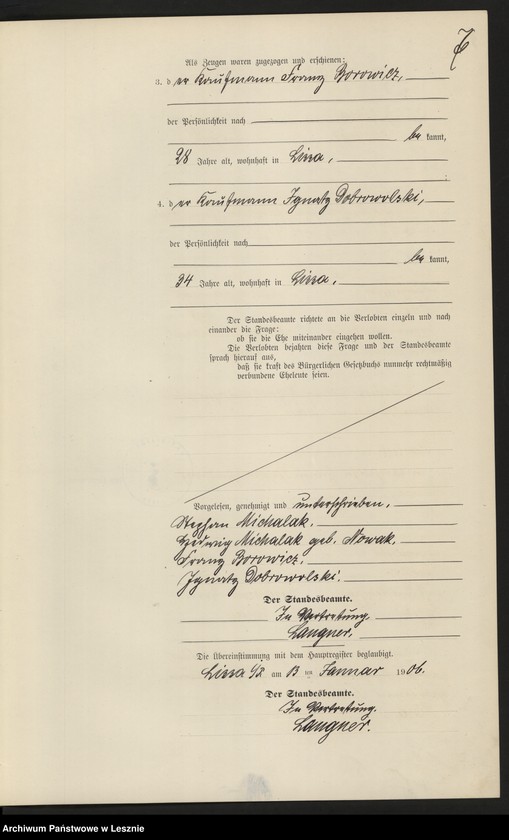 7
Als Zeugen waren zugezogen und erschienen:
3. der Kaufmann Franz Borowicz,
der Persönlichkeit nach
bekannt,
28 Jahre alt, wohnhaft in Lissa,
;
4. der Kaufmann Ignatz Dobrowolski,
der Persönlichkeit nach
bekannt,
34 Jahre alt, wohnhaft in Lissa.
Der Standesbeamte richtete an die Verlobten einzeln und nach
einander die Frage:
ob sie die Ehe miteinander eingehen wollen.
Die Verlobten bejahten diese Frage und der Standesbeamte
sprach hierauf aus,
daß sie kraft des Bürgerlichen Gesetzbuchs nunmehr rechtmäßig
verbundene Eheleute seien.
Vorgelesen, genehmigt und unterschrieben.
Stephan Michalak.
Hedwig Michalak geb. Nowak.
Franz Borowicz.
Ignatz Dobrowolski.
Der Standesbeamte.
In Vertretung.
Langner.
Die Übereinstimmung mit dem Hauptregister beglaubigt.
Lissa am 13 ten Januar 1906.
Der Standesbeamte.
In Vertretung.
Langner.
Archiwum Państwowe w Lesznie